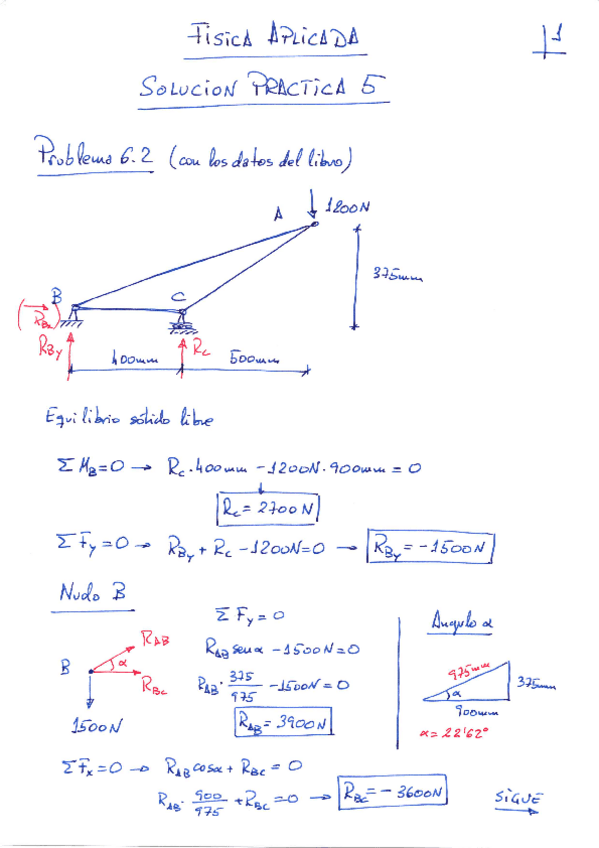 FISICA APLICADA
1
SOLUCION PRACTICA 5
Problema 6.2 (con los datos del libro)
A
1200N
375mm
B
C
R_Bx
R_By
R_C
400mm
500mm
Equilibrio sólido libre
ΣM_B=0 → R_C·400mm -1200N·900mm = 0
↓
R_C = 2700N
ΣF_y=0 → R_By + R_C -1200N=0 → R_By = -1500N
Nudo B
R_AB
B
α
R_BC
1500N
ΣF_y = 0
R_AB senα -1500N=0
R_AB· 375/975 -1500N = 0
R_AB = 3900N
Angulo α
975mm
375mm
α
900mm
α=22'62°
ΣF_x=0 → R_AB cosα + R_BC = 0
R_AB· 900/975 + R_BC = 0 → R_BC = - 3600N
SIGUE